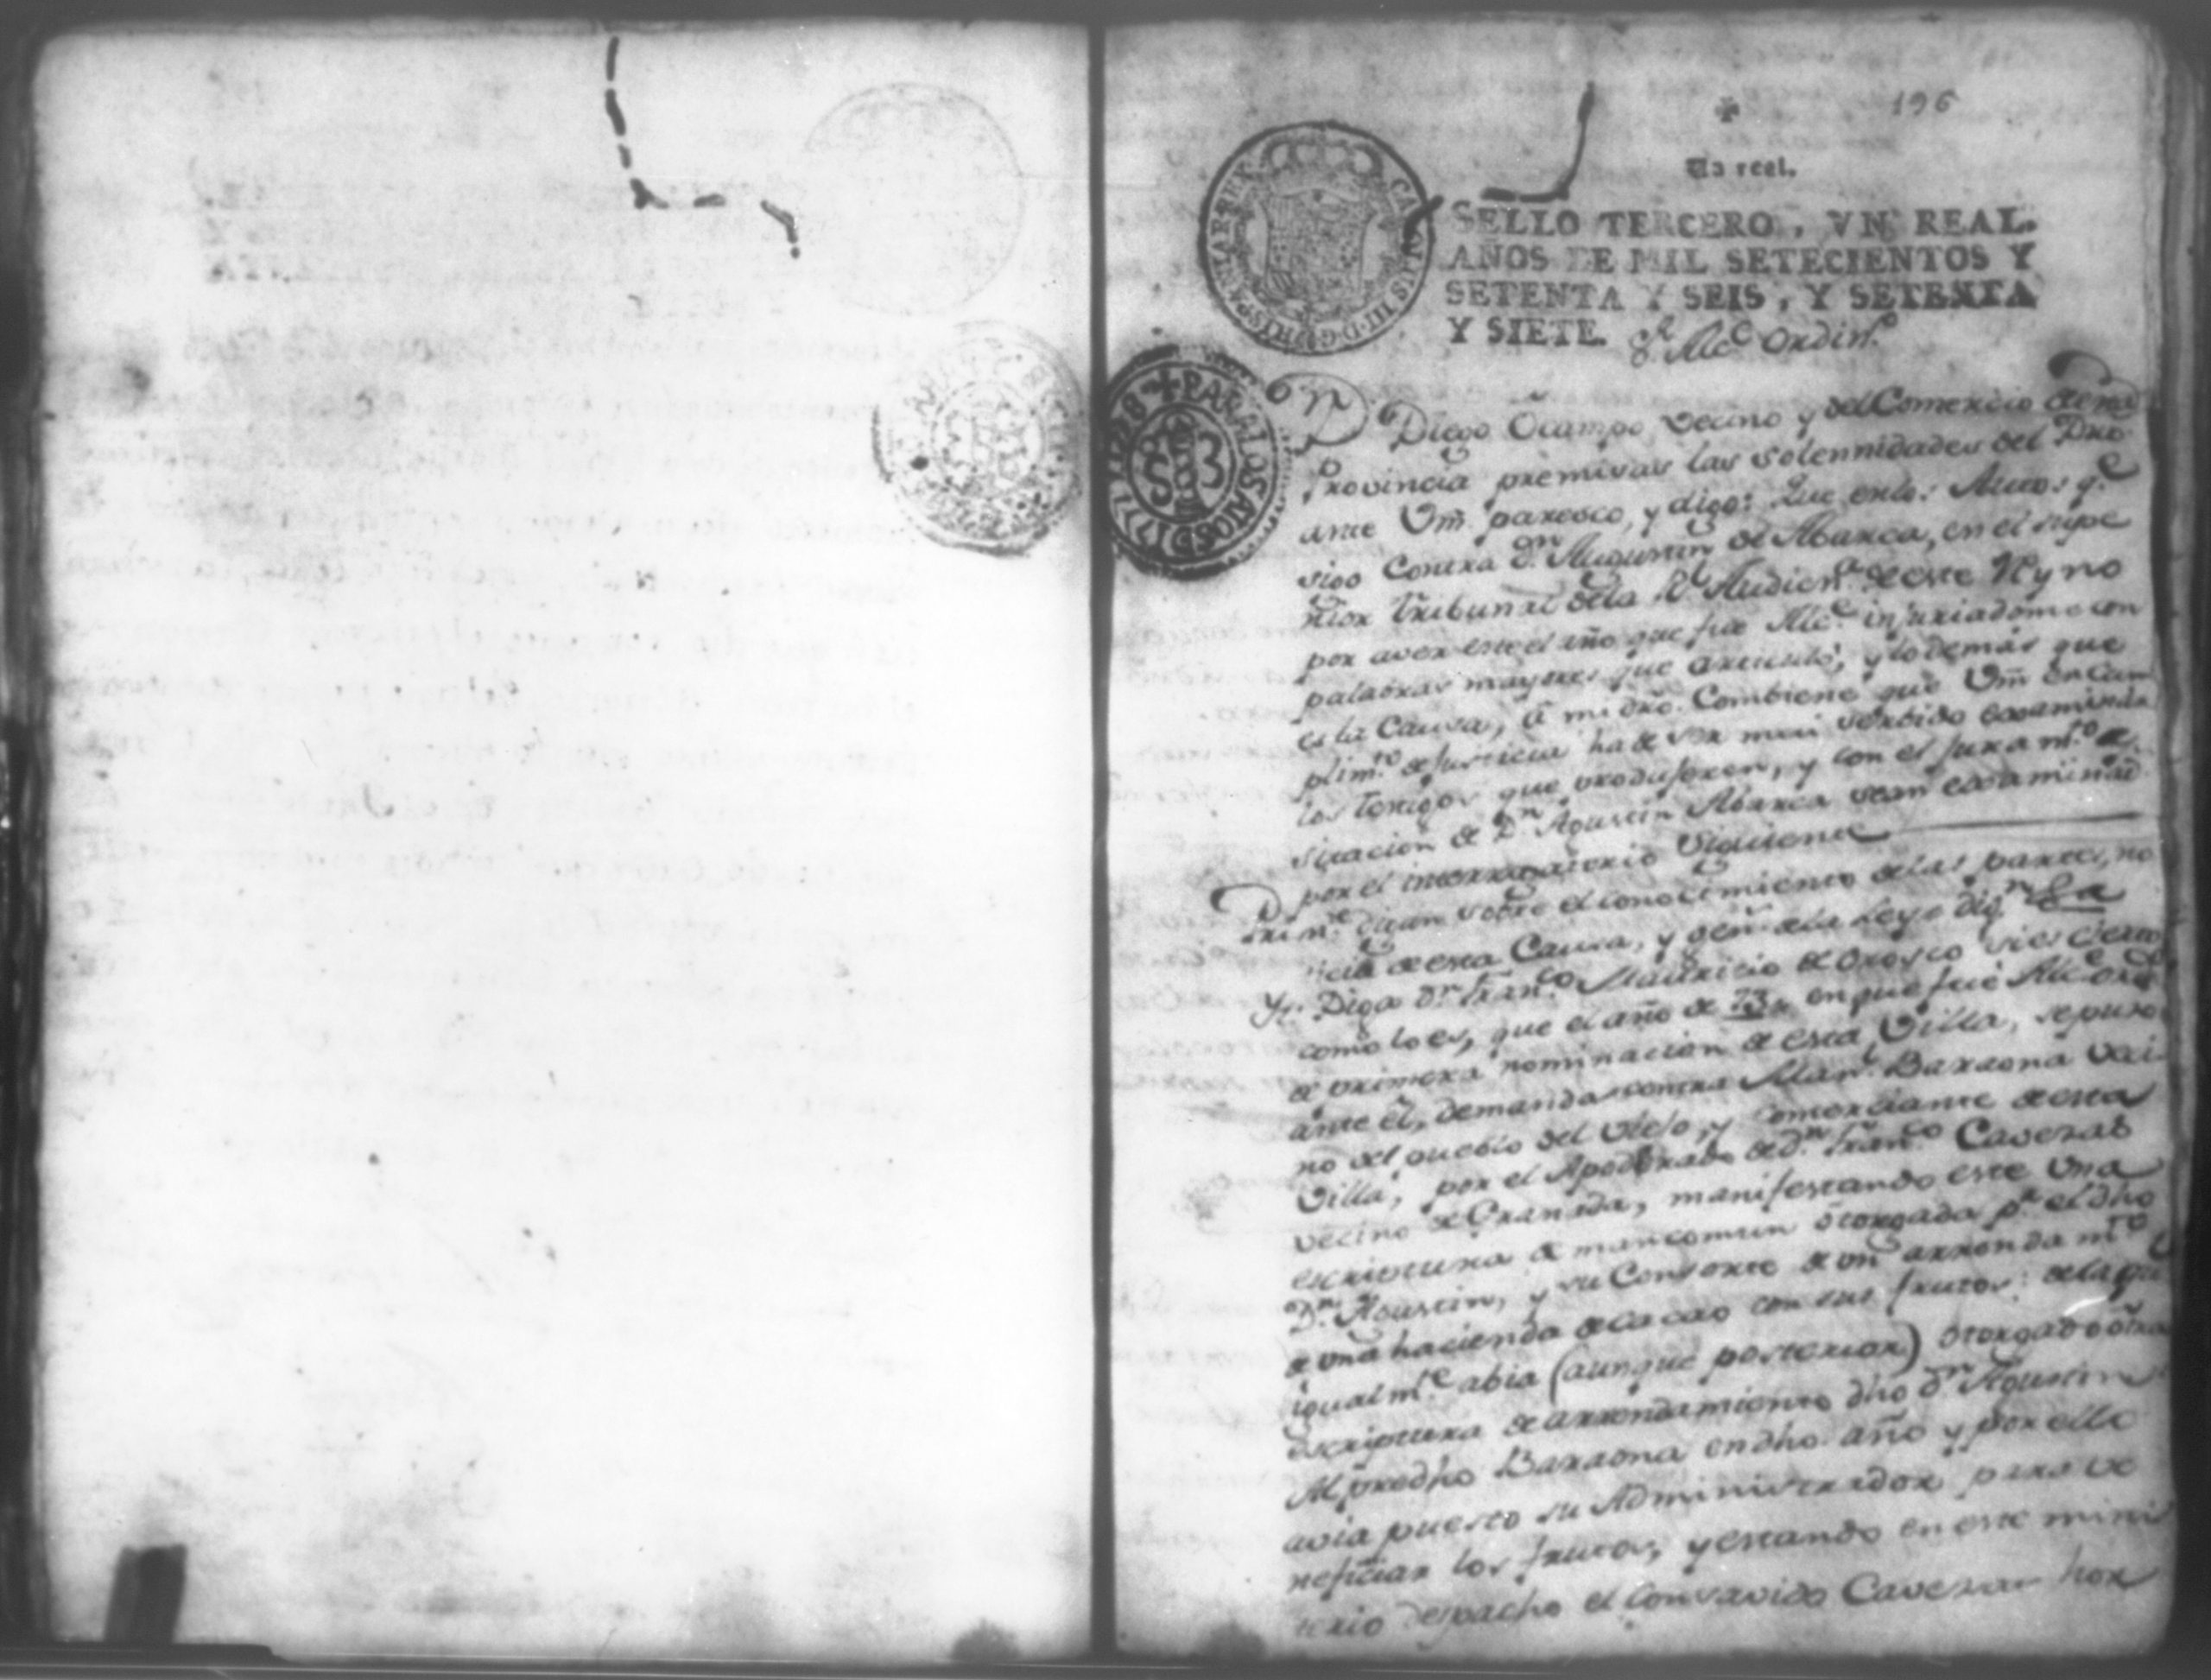 196
Un real.
SELLO TERCERO, VN REAL.
AÑOS DE MIL SETECIENTOS Y
SETENTA Y SEIS, Y SETENTA
Y SIETE.
CAROLUS III D G HISPANIAR REX
Sr Alce Ordino
PARA LOS AÑOS D 1777 Y 1778
S 3
Dn Diego Ocampo, vecino y del Comercio de esta
Provincia premisas las solennidades del Dro
ante Vm. paresco, y digo: Que en los Autos qe
sigo Contra Dn Augustin de Abarca, en el supe
rior tribunal de la Rl Audiena de este Reyno
por aver este el año que fue Alce injuriadome con
palabras mayores que articuló, y lo demás que
es la Causa, á mi dro. Combiene que Vm en Cum
plimto de justicia ha de ser mui servido examinar
los testigos que produjeren, y con el juramto de
sitación de Dn Agustin Abarca sean examinad
por el interrogatorio siguiente
Primte digan sobre el conocimiento de las partes, no
ticia de esta Causa, y genes de la Ley digan
Yt. Diga Dn Franco Mauricio de Orosco si es cierto
como lo es, que el año de 73, en que fue Alce ordo
de primera nominacion de esta Villa, se puso
ante él, demanda contra Manl Baraona veci
no del pueblo del Viejo, y comerciante de esta
Villa, por el Apoderado de Dn Franco Caveras
vecino de Granada, manifestando este una
escriptura de mancomun otorgada pr el dho
Dn Agustin, y su Consorte de un arrendamto
de una hacienda de cacao con sus frutos; de la qe
igualmte abia (aunque posterior) otorgado otra
escriptura de arrendamiento dho Dn Agustin
Al predho Baraona en dho año y por ella
avia puesto su Administrador para be
neficiar los frutos, y estando en este mini
terio despacho el consavido Caveras hor